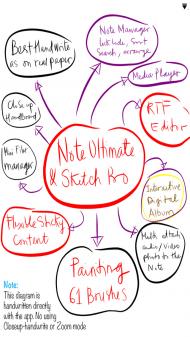 Note Manager
Lock, hide, Sort
Search, arrange
Best Handwrite
as on real paper
Media Player
Close up
Handboard
RTF
Editor
Note Ultimate
& Sketch Pro
Mini File
manager
Interactive
Digital
Album
Flexible Sticky
Content
Multi attach
audio/Video
photo to the
Note
Painting
61 Brushes
Note:
This diagram is
handwritten directly
with the app. No using
Closeup-handwrite or Zoom mode